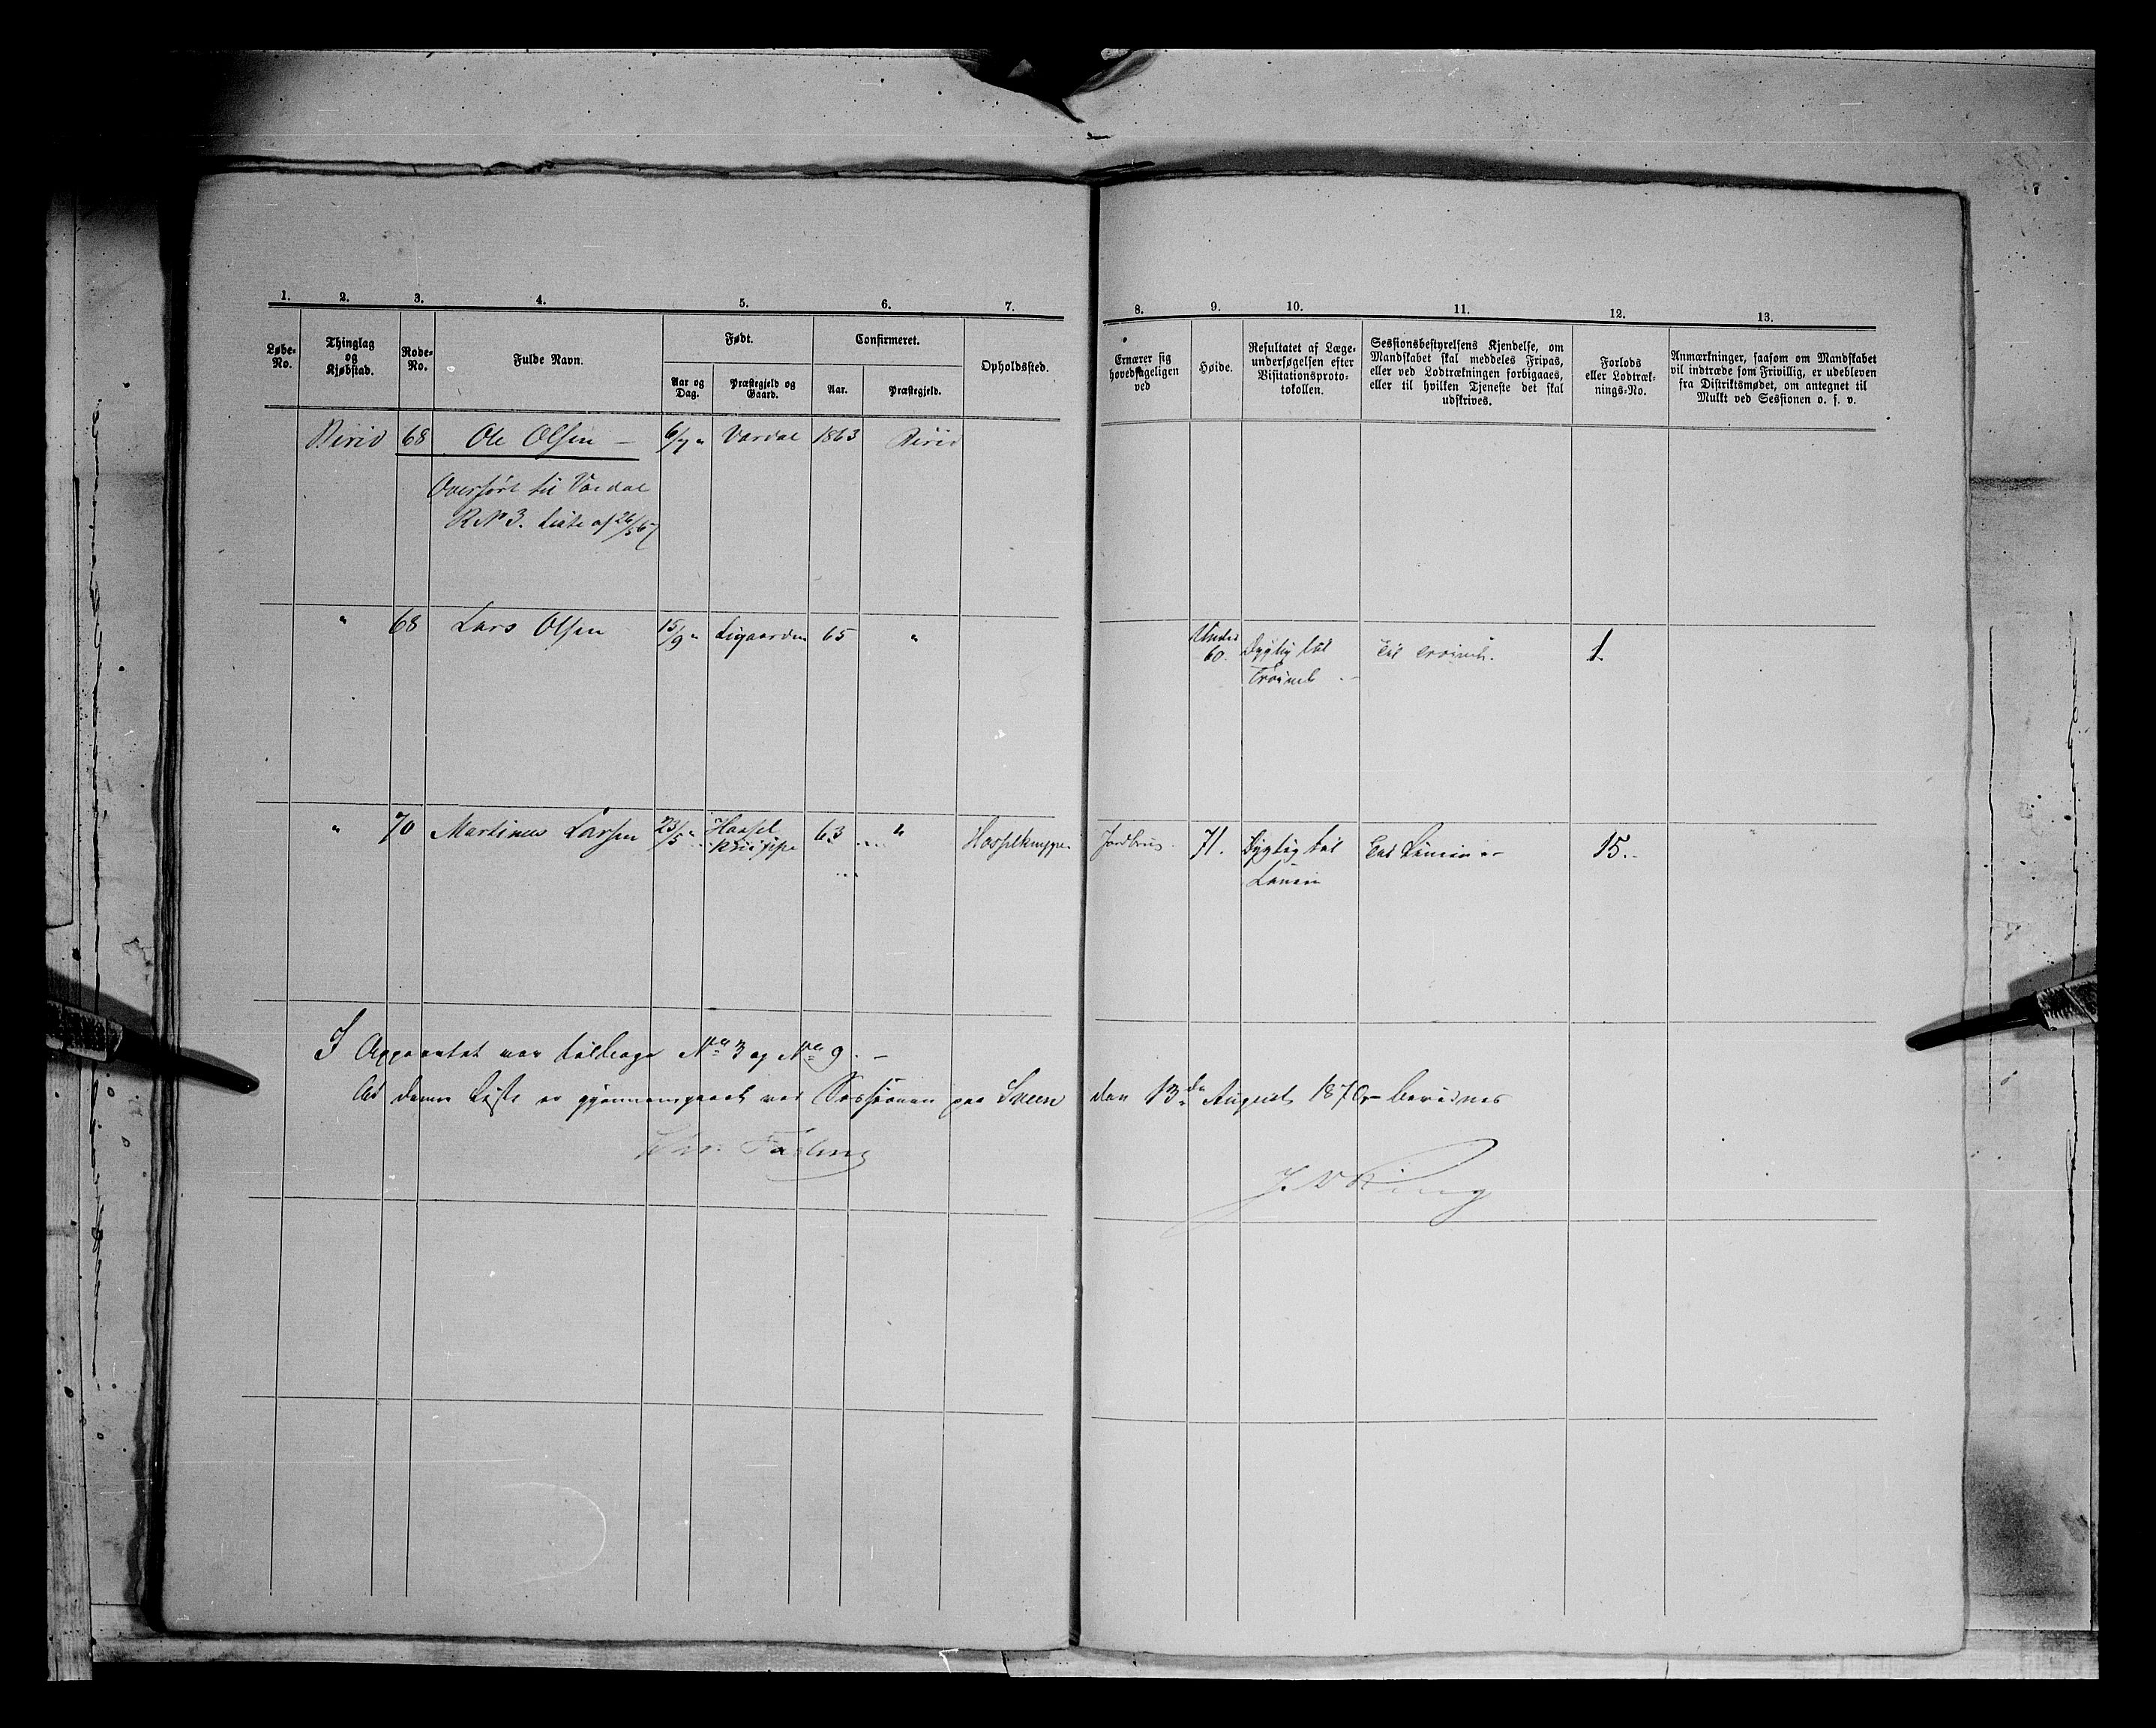 1. 2. 3. 4. 5. 6. 7. 8. 9. 10. 11. 12. 13.
Løbe-No. Thinglag og Kjøbstad. Rode-No. Fulde Navn. Født. Confirmeret. Opholdssted.
Aar og Dag. Præstegjeld og Gaard. Aar. Præstegjeld.
Ernærer sig hovedsageligen ved
Høide.
Resultatet af Læge-
undersøgelsen efter
Visitationsproto-
tokollen.
Sessionsbestyrelsens Kjendelse, om
Mandskabet skal meddeles Fripas,
eller ved Lodtrækningen forbigaaes,
eller til hvilken Tjeneste det skal
udskrives.
Forlods
eller Lodtræk-
nings-No.
Anmærkninger, saasom om Mandskabet
vil indtræde som Frivillig, er udebleven
fra Distriktsmødet, om antegnet til
Mulkt ved Sessionen o. s. v.
Birid 68 Ole Olsen — 6/7 " Vardal 1863 Birid
Overført til Vardal
R No 3. Liste af 26/5 67
" 68 Lars Olsen 15/9 " Ligaarden 65 " Under 60. Dygtig til Train Til Train. 1.
" 70 Martinus Larsen 23/5 " Hassel knippe 63 " Hasselknippe Jordbrug 71. Dygtig til Linien Til Linien 15.
I Apparatet var tilbage No 3 og No 9. —
At denne Liste er gjennemgaaet ved Sessionen paa Sveen den 13de August 1870 — bevidnes
J. W Ring